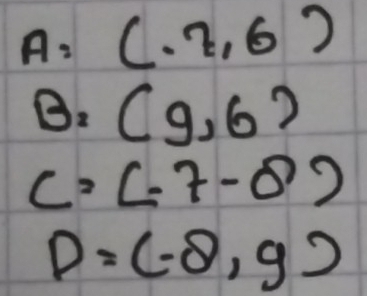 A= (-7,6)
B= (9,6)
C= (-7-8)
D=(-8,9)